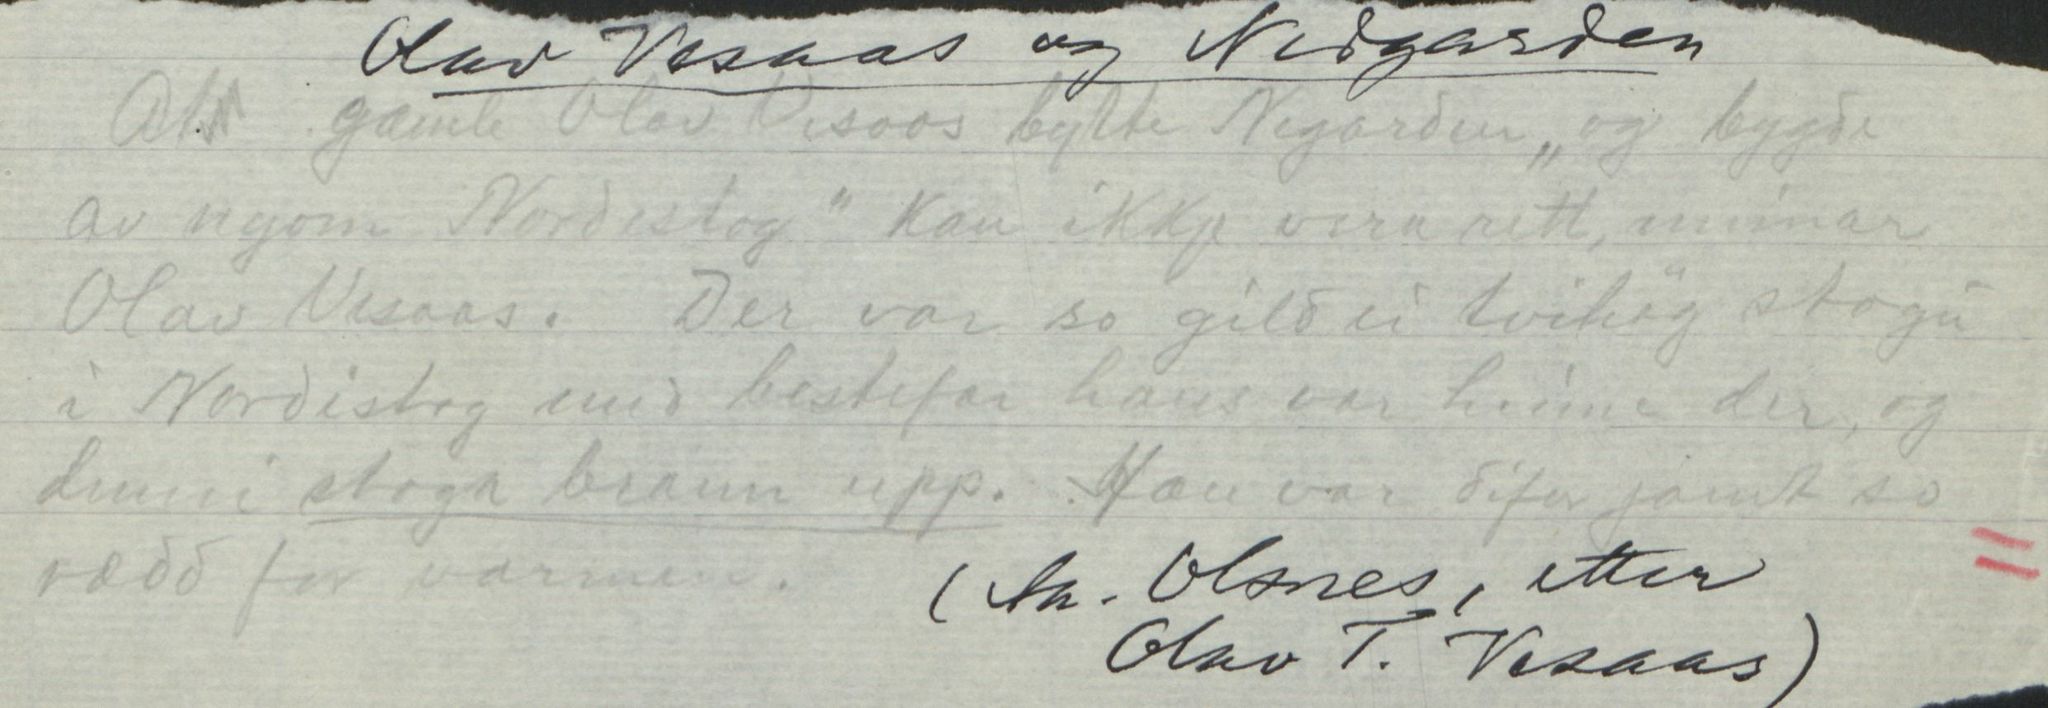 Olav Vesaas og Neðgarðen
At gamle Olav Vesaas bytte Negarðen „og bygðe
av nyom Norðistog" kan ikkje vera rett, minnar
Olav Vesaas. Der var so gilð ei tvihøg stogu
i Norðistog með bestefar hans var heime der, og
denni stoga brann upp. Han var difor jamt so
rædd for varmen.
(An. Olsnes, etter
Olav T. Vesaas)